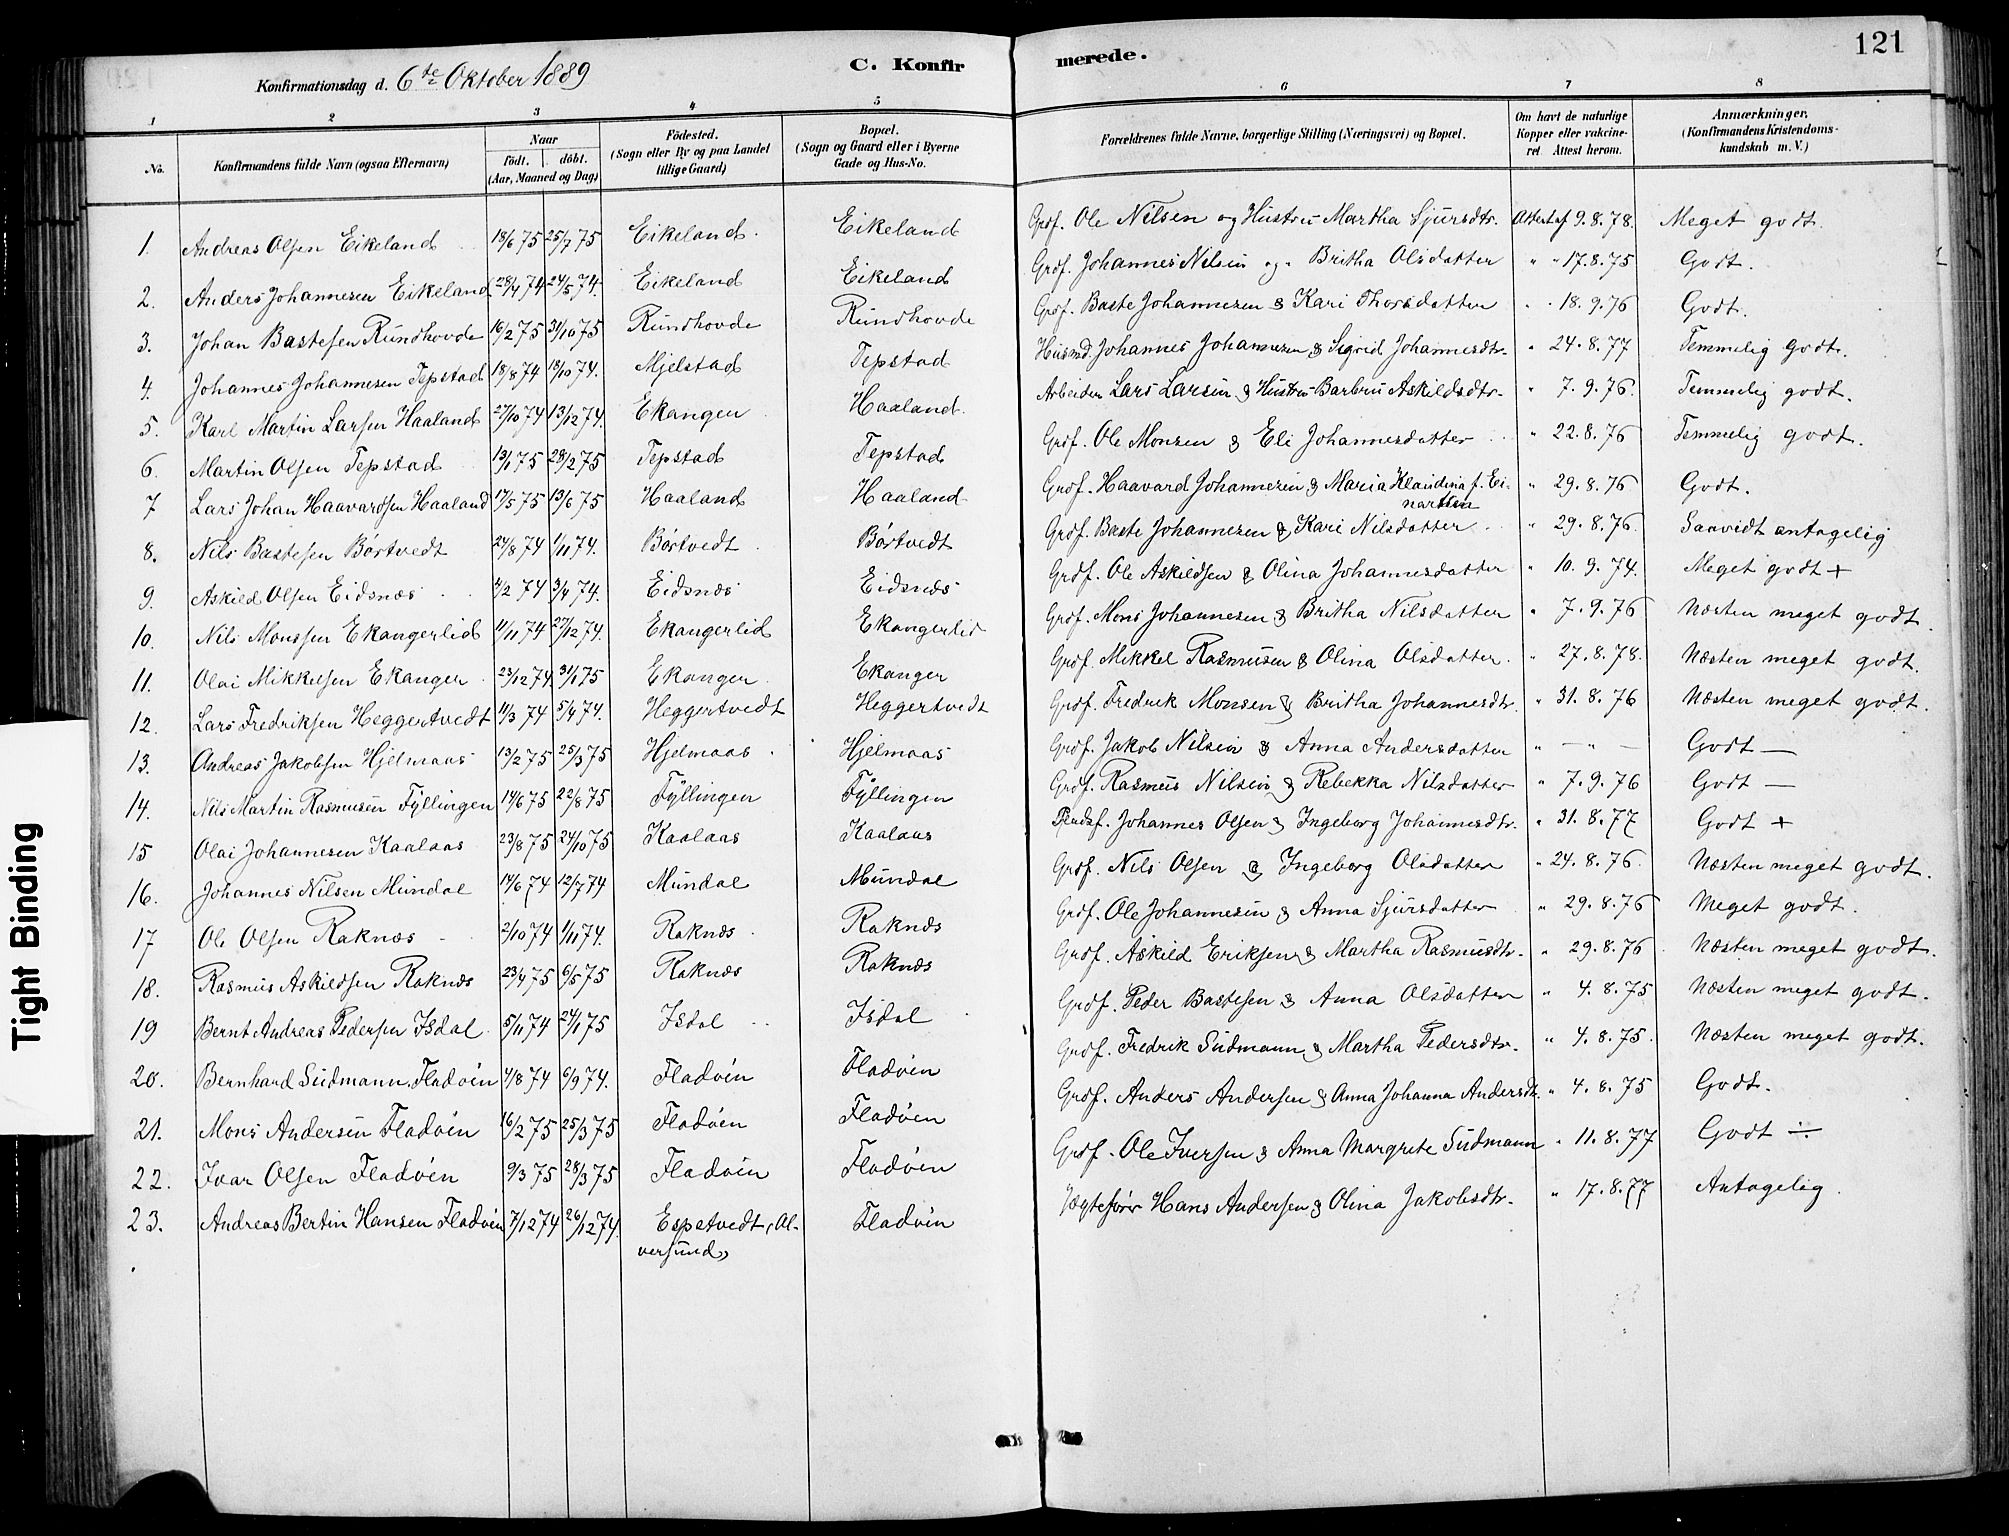 121
Konfirmationsdag d. 6te Oktober 1889
C. Konfirmerede.
1 2 3 4 5 6 7 8
No. Konfirmandens fulde Navn (ogsaa Efternavn) Naar födt. döbt. (Aar, Maaned og Dag) Födested. (Sogn eller By og paa Landet tillige Gaard) Bopæl. (Sogn og Gaard eller i Byerne Gade og Hus-No. Forældrenes fulde Navne, borgerlige Stilling (Næringsvei) og Bopæl. Om havt de naturlige Kopper eller vakcineret. Attest herom. Anmærkninger. (Konfirmandens Kristendomskundskab m. V.)
1. Andreas Olsen Eikeland 18/6 75 25/7 75 Eikeland Eikeland Grdf. Ole Nilsen og Hustru Martha Sjursdtr. Attest af 9.8.78. Meget godt.
2. Anders Johannesen Eikeland 28/4 74 24/5 74. Eikeland Eikeland Grdf. Johannes Nilsen og Britha Olsdatter " " 17.8.75 Godt.
3. Johan Bastesen Rundhovde 16/2 75 31/10 75 Rundhovde Rundhovde Grdf. Baste Johannesen & Kari Thorsdatter " " 18.9.76 Godt.
4. Johannes Johannesen Tepstad 18/8 74 18/10 74. Mjelstad Tepstad Husmd. Johannes Johannesen & Sigrid Johannesdtr. " 24.8.77 Temmelig godt.
5. Karl Martin Larsen Haaland 27/10 74 13/12 74. Ekanger Haaland Arbeider Lars Larsen & Hustru Barbru Askildsdtr. " 7.9.76. Temmelig godt.
6. Martin Olsen Tepstad 13/1 75 28/2 75 Tepstad Tepstad Grdf. Ole Monsen & Eli Johannesdatter " 22.8.76 Temmelig godt.
7 Lars Johan Haavardsen Haaland 17/5 75 13/6 75 Haaland Haaland Grdf. Haavard Johannesen & Maria Klaudina f. Einartsen " 29.8.76 Godt.
8. Nils Bastesen Börtvedt 24/8 74 1/11 74. Börtvedt Börtvedt Grdf. Baste Johannesen & Kari Nilsdatter " 29.8.76. Saavidt antagelig
9. Askild Olsen Eidsnæs 4/2 74 3/4 74. Eidsnæs Eidsnæs Grdf. Ole Askildsen & Olina Johannesdatter " 10.9.74. Meget godt +
10. Nils Monssen Ekangerlid 11/11 74 27/12 74. Ekangerlid Ekangerlid Grdf. Mons Johannesen & Britha Nilsdatter " 7.9.76 Næsten meget godt.
11. Olai Mikkelsen Ekanger 23/12 74 31/1 75 Ekanger Ekanger Grdf. Mikkel Rasmusen & Olina Olsdatter. " 27.8.78. Næsten meget godt.
12. Lars Fredriksen Heggertvedt 11/3 74 5/4 74. Heggertvedt Heggertvedt Grdf. Fredrik Monsen & Britha Johannesdtr. " 31.8.76 Næsten meget godt.
13. Andreas Jakobsen Hjelmaas 13/2 75 25/3 75 Hjelmaas Hjelmaas Grdf. Jakob Nilsen & Anna Andersdatter " — " — Godt —
14. Nils Martin Rasmusen Fyllingen 14/6 75 22/8 75 Fyllingen Fyllingen Grdf. Rasmus Nilsen & Rebekka Nilsdatter " 7.9.76 Godt —
15 Olai Johannesen Kaalaas 23/8 75 24/10 75 Kaalaas Kaalaas Johannes Olsen & Ingeborg Johannesdtr. " 31.8.77 Godt +
16. Johannes Nilsen Mundal 14/6 74 12/7 74 Mundal Mundal Grdf. Nils Olsen & Ingeborg Olsdatter " 24.8.76. Næsten meget godt.
17 Ole Olsen Raknæs 2/10 74 1/11 74. Raknæs Raknæs Grdf. Ole Johannesen & Anna Sjursdatter " 29.8.76 Meget godt.
18. Rasmus Askildsen Raknæs 23/4 75 6/5 75 Raknæs Raknæs Grdf. Askild Eriksen & Martha Rasmusdtr. " 29.8.76. Næsten meget godt.
19 Bernt Andreas Pedersen Isdal 5/11 74 24/1 75 Isdal Isdal Grdf. Peder Bastesen & Anna Olsdatter " 4.8.75 Næsten meget godt.
20. Bernhard Sudmann Fladöen 4/8 74 6/9 74. Fladöen Fladöen Grdf. Fredrik Sudmann & Martha Pedersdtr. " 4.8.75. Næsten meget godt.
21. Mons Andersen Fladöen 16/2 75 25/3 75 Fladöen Fladöen Grdf. Anders Andersen & Anna Johanna Andersdtr. " 4.8.75 Godt.
22. Ivar Olsen Fladöen 9/3 75 28/3 75 Fladöen Fladöen Grdf. Ole Iversen & Anna Margrete Sudmann " 11.8.77 Godt ÷
23. Andreas Bertin Hansen Fladöen 7/12 74 26/12 74. Espetvedt, (Alversund) Fladöen Jægtefører Hans Andersen & Olina Jakobsdtr. " 17.8.77 Antagelig.
Tight Binding